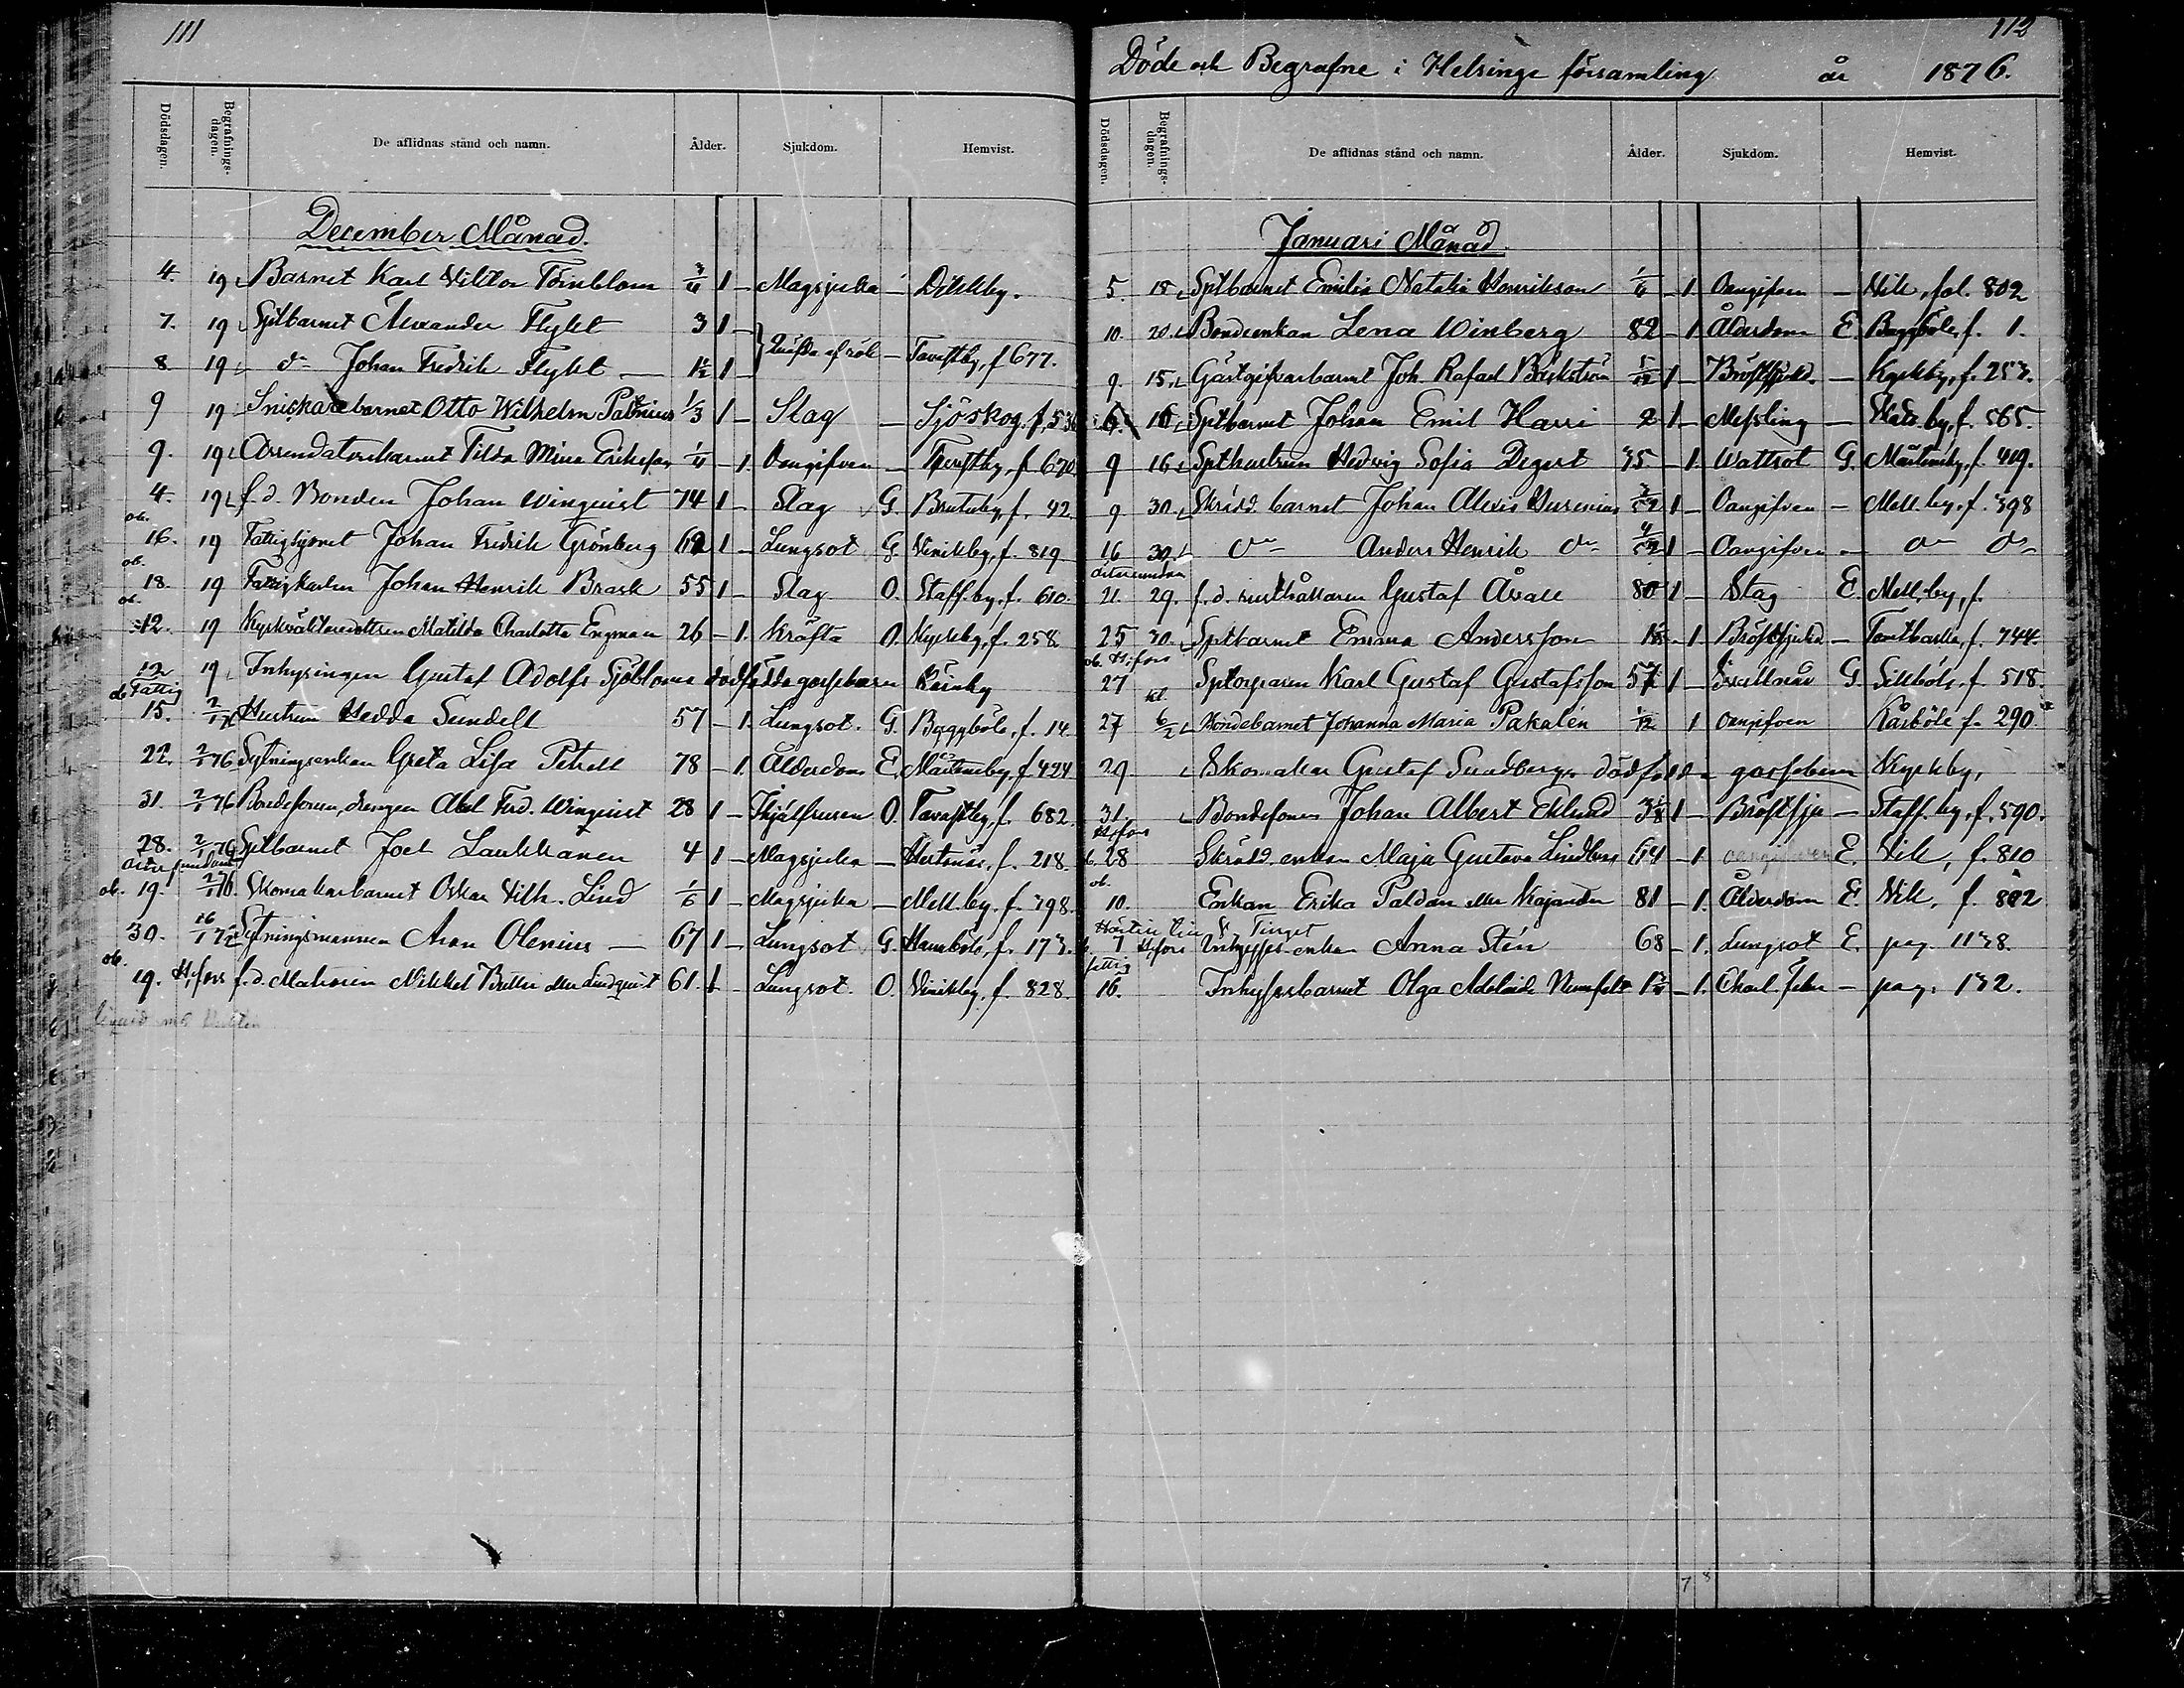 111
Dödsdagen. Begrafnings-dagen. De aflidnas stånd och namn. Ålder. Sjukdom. Hemvist.
December Månad.
4. 19 Barnet Karl Viktor Törnblom 3/4 1 - Magsjuka - Dickby.
7. 19 Sptbarnet Alexander Flykt 3 1 -
8. 19 do Johan Fredrik Flykt - 1 1/2 1 - Qväfda af rök - Tavastby, f 677.
9 19 Snickarebarnet Otto Wilhelm 1/3 1 - Slag - Sjöskog, f. 536
9. 19 Arrendatorbarnet Tilda Mina Eriksson - 1. Oangifven - f 670
4. 19 f. d. Bonden Johan Winquist 74 1 - Slag G. Brutuby, f. 42.
ob.
16. 19 Fattighjonet Johan Fredrik Grönberg 62 1 - Lungsot G. Vinikby, f. 819
ob.
18. 19 Fattigkarlen Johan Henrik Brask 55 1 - Slag O. Staff.by, f. 610.
ob.
12. 19 Matilda Charlotta Engman 26 - 1. Kräfta O. Kyrkby, f. 258
12 19 Inhysingen Gustaf Adolfs Sjöbloms dödfödda gossebarn
ob Fattig
15. 2/1 76 Hustrun Hedda Sundell 57 - 1. Lungsot. G. Byggböle, f. 14
22. 2/1 76 Sytningsenkan Greta Lisa Petrell 78 - 1. Ålderdom E. Mårtensby, f 424
31. 2/1 76 Bondesonen, drengen Abel Ferd. Winquist 28 1 - Ihjälfrusen O. Tavastby, f. 682.
28. 2/1 76 Sptbarnet Joel Laukkanen 4 1 - Magsjuka - Hertonäs, f. 218.
ob. 19. 2/1 76. Skomakarbarnet Oskar Vilh. Lind 1/6 1 - Magsjuka - Mell.by. f. 398.
30. 16/1 Sytningsmannen Aron Olenius - 67 1 - Lungsot G. Hannböle, f. 173.
ob.
19. H:fors f. d. Matrosen Mikkel eller Lindquist 61. 1 - Lungsot. O. Vinikby. f. 828.
112
Döde och Begrafne i Helsinge församling år 1876.
Dödsdagen. Begrafnings-dagen. De aflidnas stånd och namn. Ålder. Sjukdom. Hemvist.
Januari Månad.
5. 15 Sptbarnet Emilia Natalia Henrikson - 1 Oangifven - Vik, fol. 802
10. 20. Bondeenkan Lena Winberg 82 - 1 Ålderdom E. Byggböle, f. 1.
9. 15. Gästgifvarbarnet Joh. Rafael Bäckström 5/12 1 - Bröstsjukd. - Kyrkby, f. 253.
6. 16 Sptbarnet Johan Emil Harri 2 1 - Messling - by, f. 565.
9 16 Spthustrun Hedvig Sofia Degert 35 - 1. Wattsot G. Mårtensby, f. 419.
9. 30. Skrädd. barnet Johan Alexis 1 - Oangifven - Mell. by. f. 398
16 30. do Anders Henrik do 4/52 1 - Oangifven - do do
21. 29. f. d. rusthållaren Gustaf Åvall 80 1 - Slag E. Mell.by, f.
25 30. Sptbarnet Emma Andersson - 1. Bröstsjukd. - Tomtbacka, f. 744.
ob. H:fors
27 Sptorparen Karl Gustaf Gustafsson 57 1 - G. Sillböle, f. 518.
27 6/2 Bondebarnet Johanna Maria Pakalén 1/12 1 Oangifven Kårböle f. 290.
29 Skomakar Gustaf Sundbergs dödfödda gossebarn Kyrkby,
31. Bondesonen Johan Albert Eklund 1 - Bröstsju - Staff. by. f. 590.
H:fors
28 Skrädd. enkan Maja Gustava Lindberg 64 - 1. oangifven E. Vik, f. 810
ob.
10. Enkan Erika Paldan eller Kajander 81 - 1. Ålderdom E. Vik, f. 802
7 H:fors Anna Stén 68 - 1. Lungsot E. pag. 1138.
fattig
16. Inhysesbarnet Olga Adelaide - 1. Charl. feber - pag. 132.
7 8